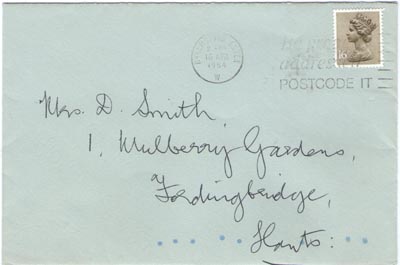 16 
1984
W
addressed
POSTCODE IT
16
Mrs. D. Smith,
1, Mulberry Gardens,
Fordingbridge,
Hants: